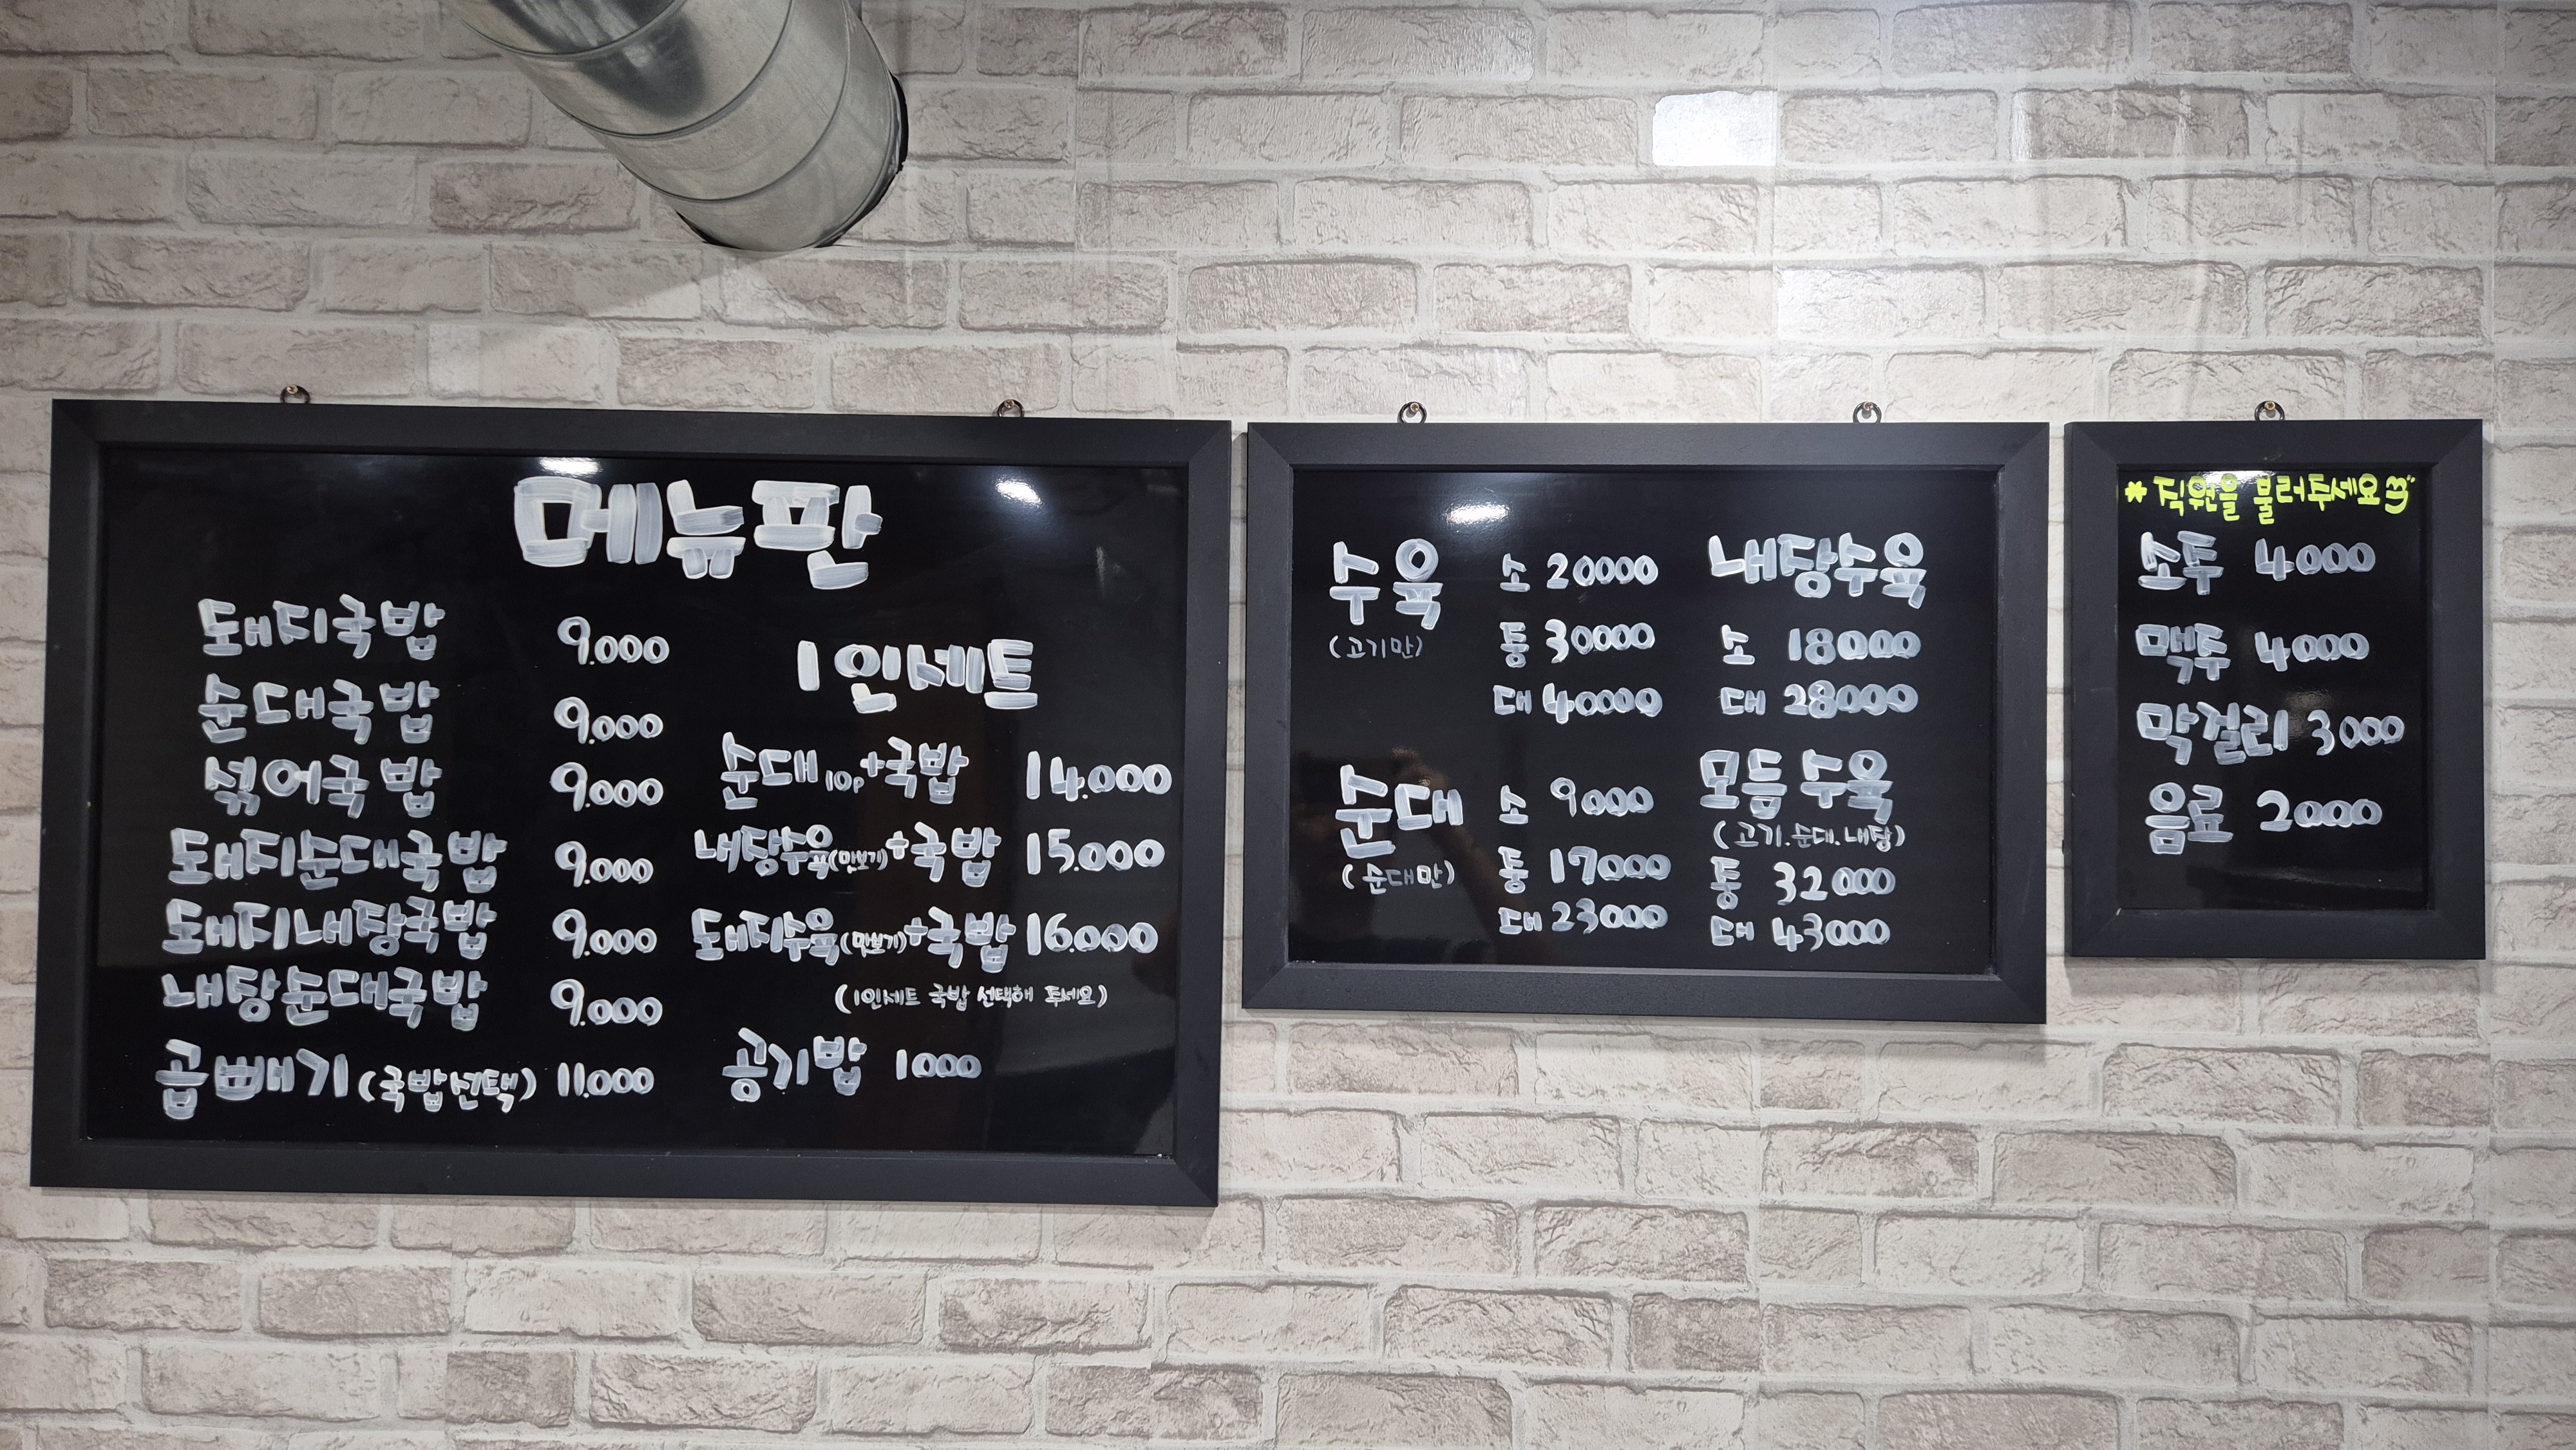 메뉴판
돼지국밥 9.000
순대국밥 9.000
섞어국밥 9.000
돼지순대국밥 9.000
돼지내장국밥 9.000
내장순대국밥 9.000
곱빼기(국밥선택) 11.000
1인세트
순대10p+국밥 14.000
내장수육(맛보기)+국밥 15.000
돼지수육(맛보기)+국밥 16.000
(1인세트 국밥 선택해 주세요)
공기밥 1000
수육 소 20000
(고기만) 중 30000
대 40000
순대 소 9000
(순대만) 중 17000
대 23000
내장수육
소 18000
대 28000
모듬수육
(고기.순대.내장)
중 32000
대 43000
* 직원을 불러주세요
소주 4000
맥주 4000
막걸리 3000
음료 2000